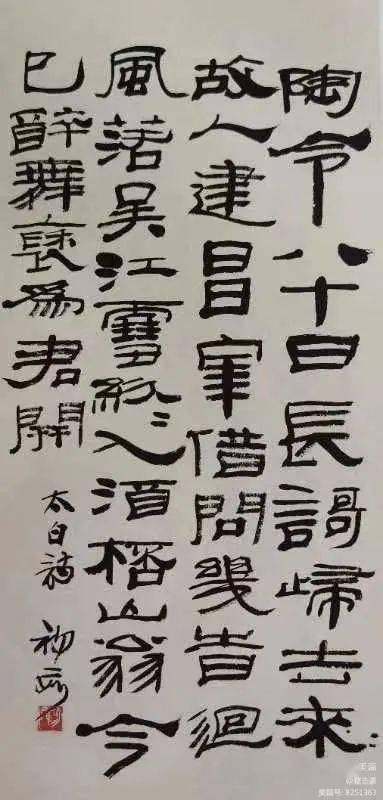 陶令八十日長謌㱕去來
故人建昌宰借問幾旹迴
風落吳江雪紛〻入酒桮山翁今
已醉舞褎爲君開
太白詩
美篇号: 8251363